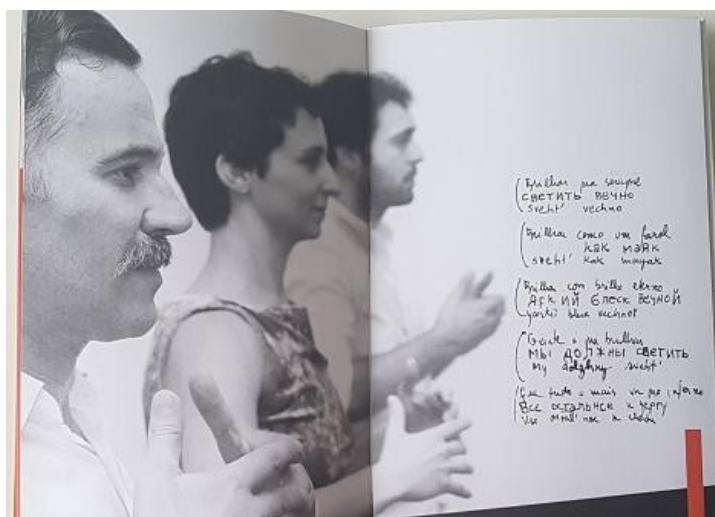 Brilhar pra sempre
СВЕТИТЬ ВЕЧНО
svetit' vechno
Brilhar como um farol
КАК МАЯК
svetit' kak mayak
Brilhar com brilho eterno
ЯРКИЙ БЛЕСК ВЕЧНОЙ
yarkii blesk vechnoi
Gente é pra brilhar
МЫ ДОЛЖНЫ СВЕТИТЬ
my dolzhny svetit'
Que tudo o mais vá pro inferno
ВСЕ ОСТАЛЬНОЕ К ЧЕРТУ